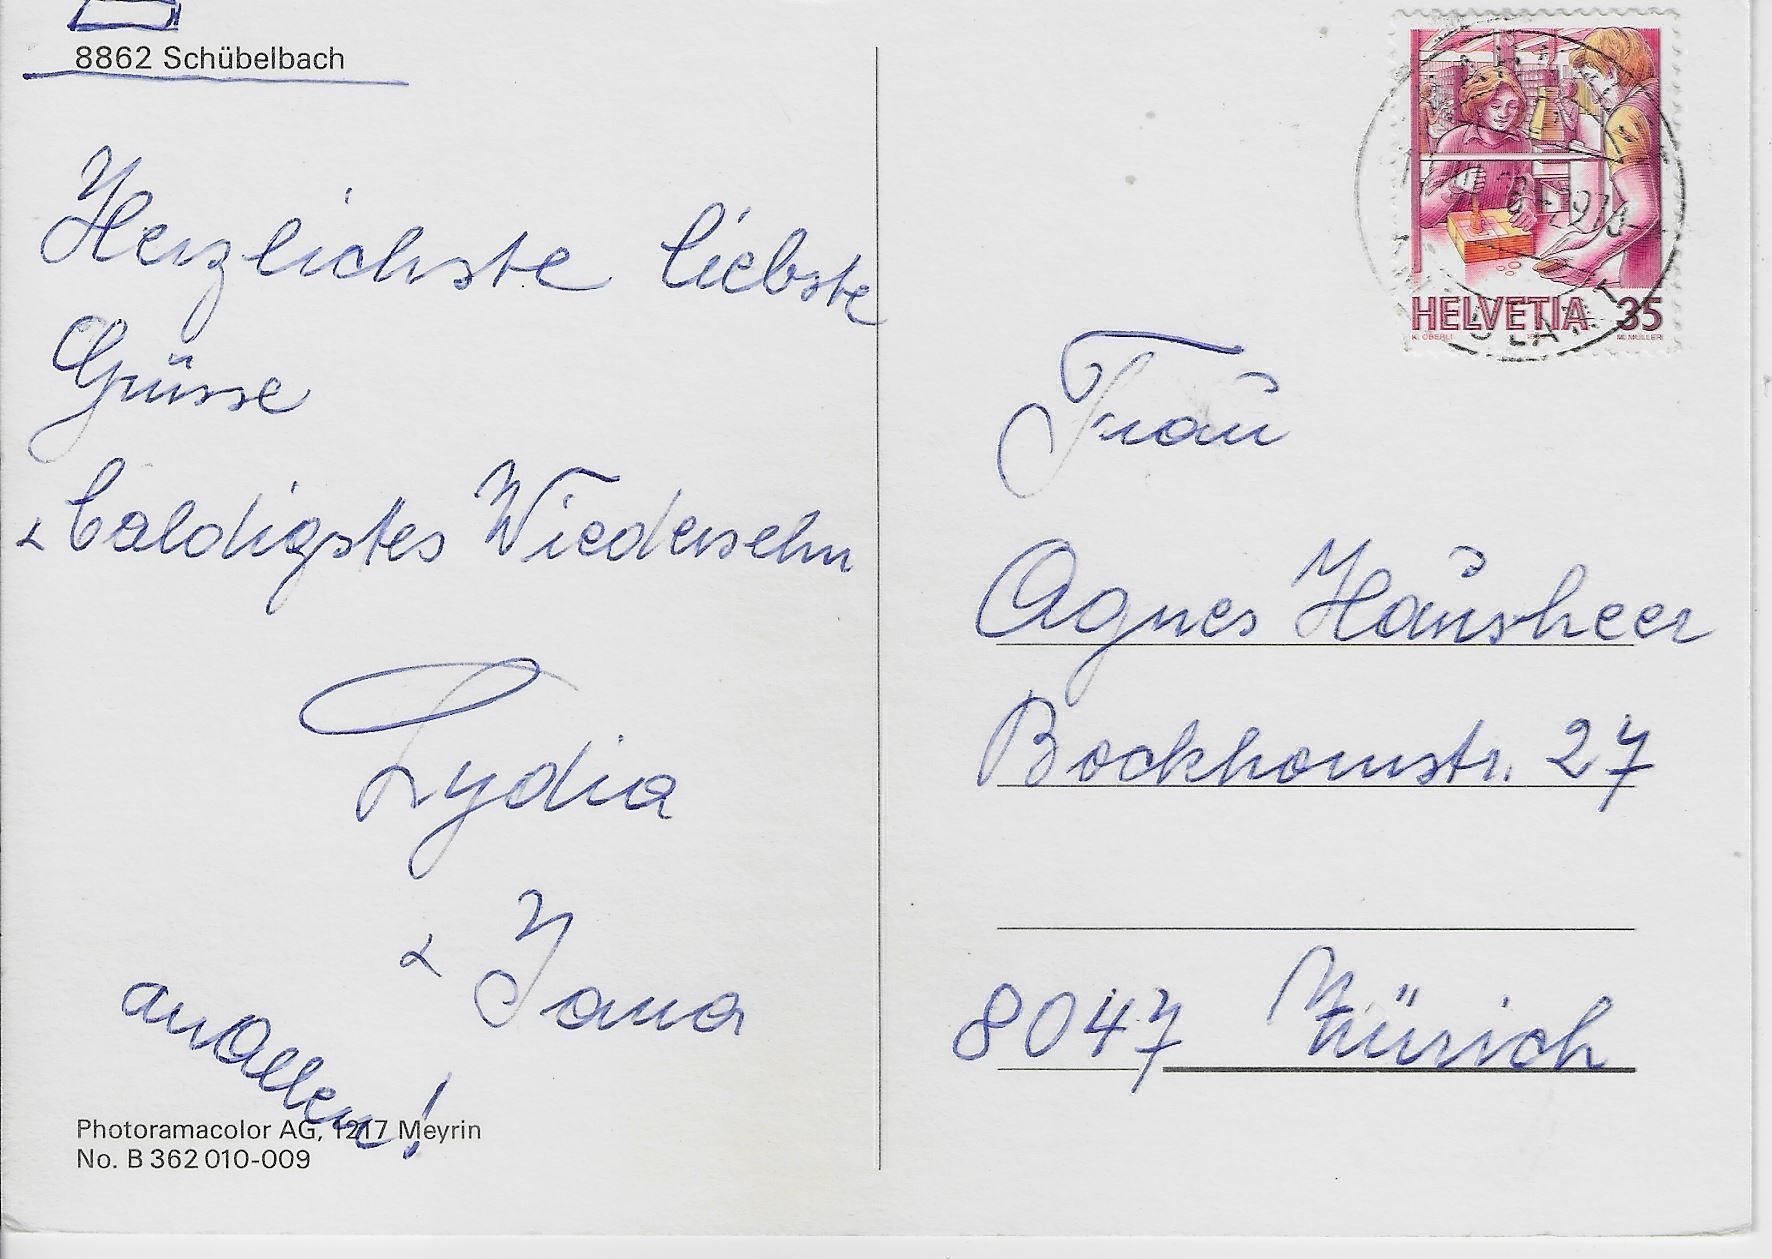 8862 Schübelbach
Herzlichste liebste
Grüsse
& baldigstes Wiedersehn
Lydia
& Jana
an Allen!
Photoramacolor AG, 1217 Meyrin
No. B 362 010-009
HELVETIA 35
K. OBERLI M. MÜLLER
Frau
Agnes Hausheer
Bockhornstr. 27
8047 Zürich